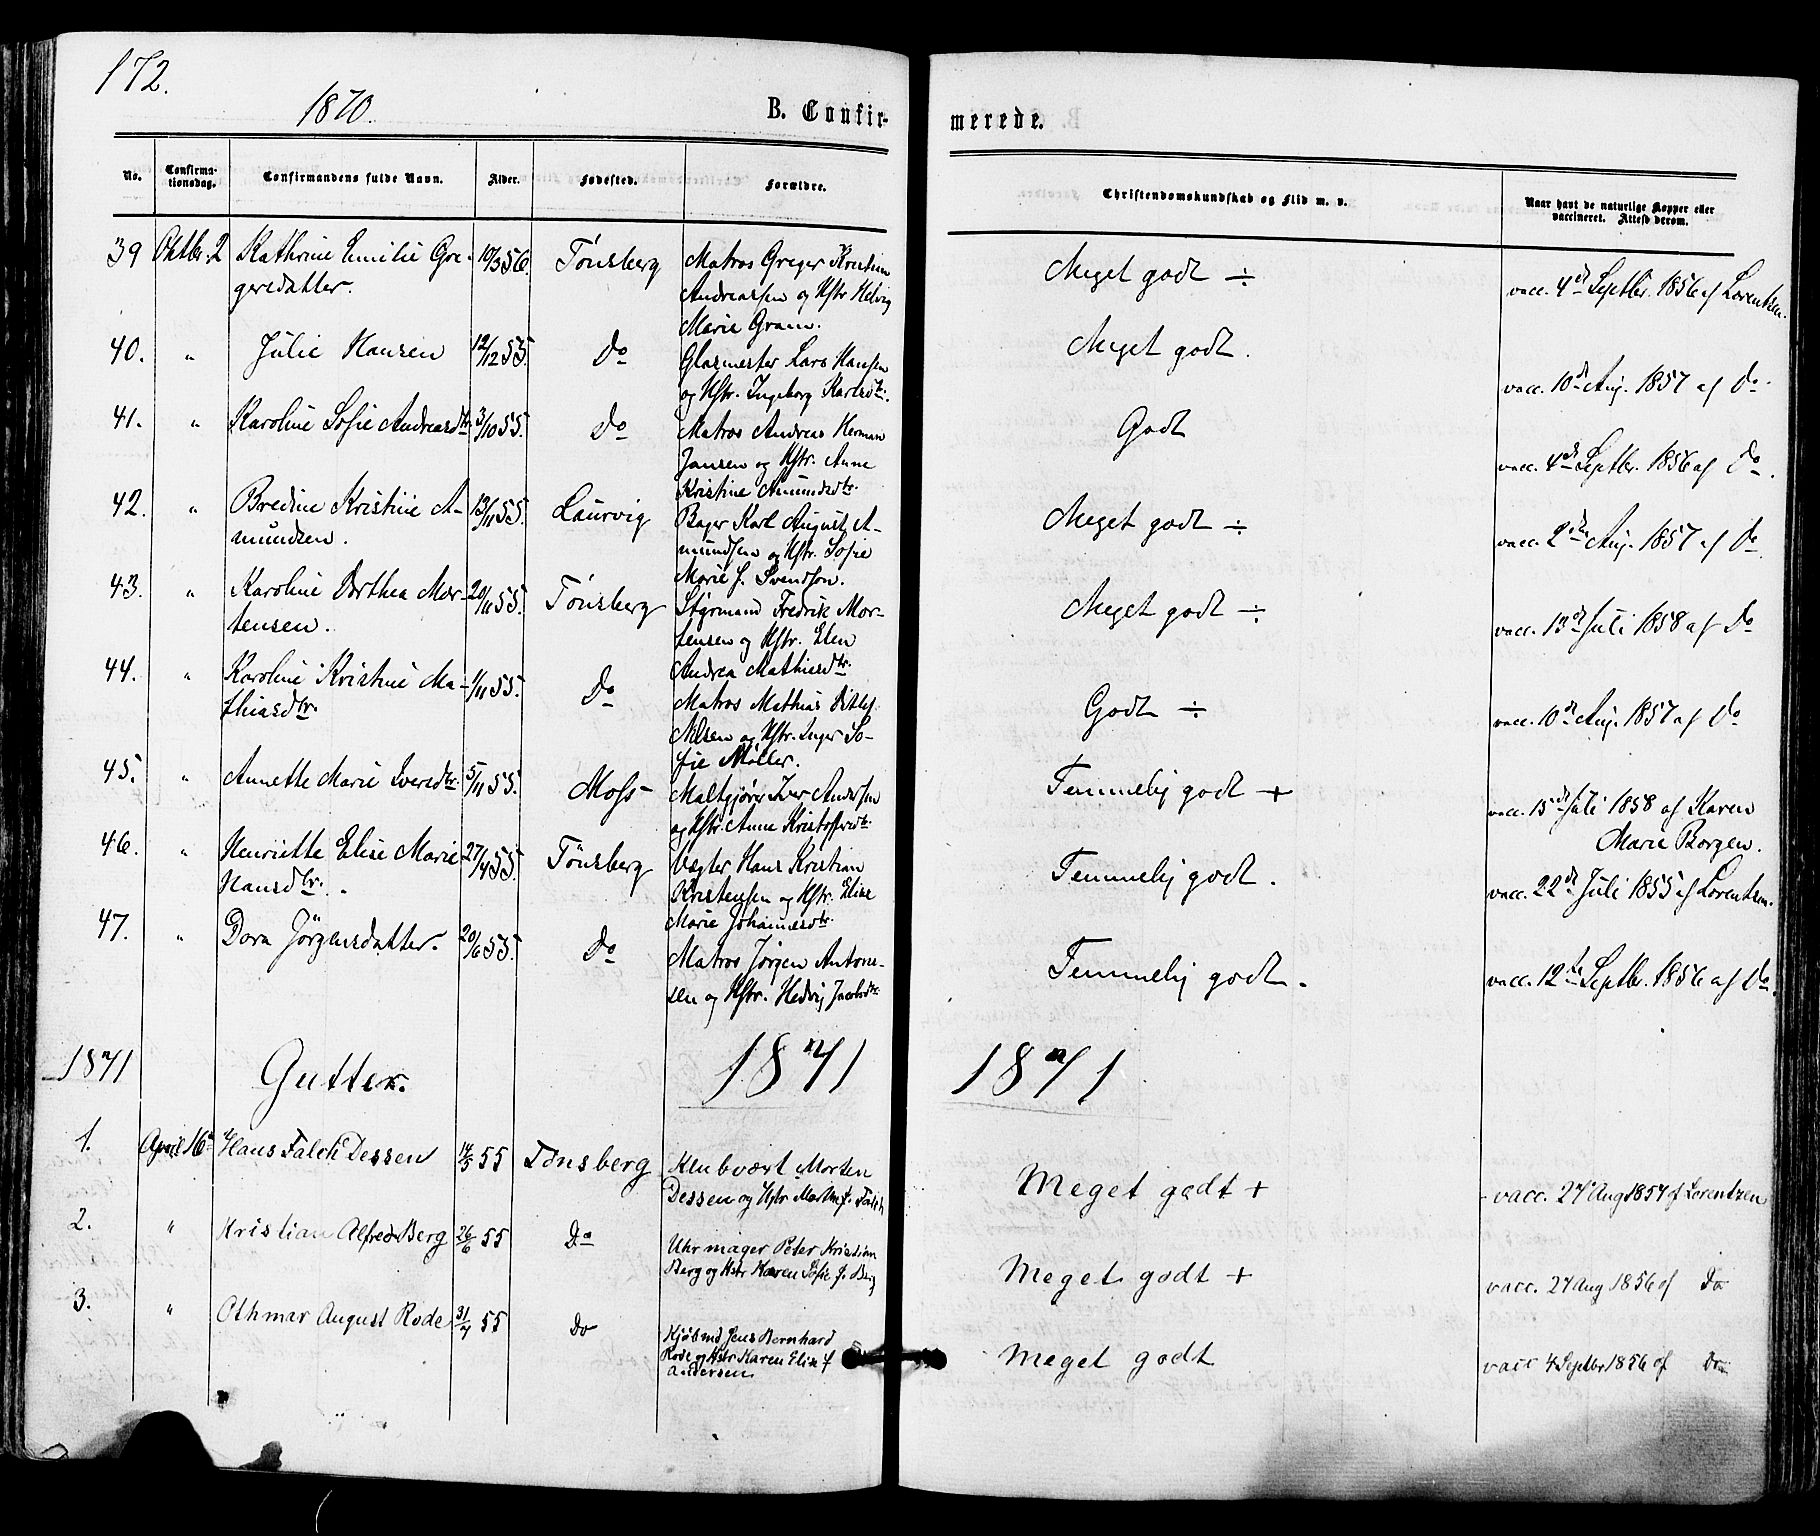 172.
1870.
B. Confirmerede.
No. Confirmationsdag. Confirmandens fulde Navn. Alder. Fødested. Forældre. Christendomskundskab og Flid m. v. Naar havt de naturlige Kopper eller vaccineret. Attest derom.
39 Oktbr. 2 Kathrine Emilie Gre- 10/3 56. Tönsberg Matros Greger Kristian Meget godt ÷ vacc. 4de Septbr. 1856 af Lorentzen.
geredatter. Andreassen og Hstr Helvig
Marie Gram.
40. " Julie Hansen 12/12 55. Do Glasmester Lars Hansen Meget godt. vacc. 10de Aug. 1857 af Do.
og Hstr. Ingeborg Karlsdtr.
41. " Karoline Sofie Andreasdtr 3/10 55. Do Matros Andreas Herman Godt vacc. 4de Septbr. 1856 af Do.
Jansen og Hstr. Anne
Kristine Amundsdtr.
42. " Bredine Kristine A- 13/11 55. Laurvig Bager Karl August A- Meget godt ÷ vacc. 2den Aug. 1857 af Do
mundsen. mundsen og Hstr. Sofie
Marie f. Svendsen.
43. " Karoline Dorthea Mor- 20/11 55. Tönsberg Styrmand Fredrik Mor- Meget godt ÷ vacc. 13de Juli 1858 af Do
tensen. tensen og Hstr. Elen
Andrea Mathiesdtr.
44. " Karoline Kristine Ma- 1/11 55. Do Matros Mathias Ditlef Godt ÷ vacc. 10de Aug. 1857 af Do
thiasdtr. Nilsen og Hstr. Inger So-
fie Möller.
45. " Annette Marie Iversdtr. 5/11 55. Moss Maltgjører Iver Andersen Temmelig godt + vacc. 15de Juli 1858 af Karen
og Hstr. Anne Kristoffersdtr. Marie Borgen.
46. " Henriette Elise Marie 27/4 55. Tønsberg Vægter Hans Kristian Temmelig godt. vacc. 22de Juli 1855 af Lorentzen.
Hansdtr. Kristensen og Hstr. Elise
Marie Johannesdtr.
47. " Dora Jörgensdatter. 20/6 55. Do Matros Jörgen Antone- Temmelig godt. vacc. 12te Septbr. 1856 af Do.
sen og Hstr. Hedvig Jacobsdtr.
1871 Gutter. 1871 1871
1. April 16de Hans Falch Dessen 14/5 55 Tønsberg Klubvært Morten Meget godt + vacc. 27 Aug 1857 af Lorentzen
Dessen og Hstr f. Falch
2. " Kristian Alfred Berg 26/6 55 Do Uhrmager Peter Kristian Meget godt + vacc. 27 Aug 1856 af Do
Berg og Hstr Karen Sofie f. Berg
3. " Othmar August Rode 31/7 55 Do Kjøbmd Jens Bernhard Meget godt vacc 4 Septbr 1856 af Do
Rode og Hstr Karen Elise f
Andersen